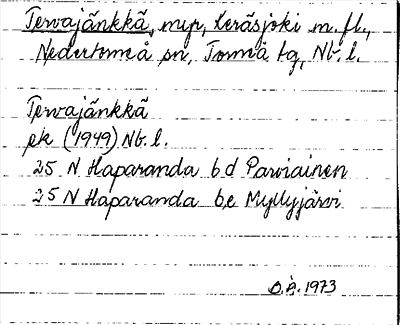 Tervajänkkä, myr, Keräsjoki m.fl.,
Nedertorneå sn, Torneå tg, Nb. l.
Tervajänkkä
ek (1949) Nb. l.
25 N Haparanda b d Parviainen
25 N Haparanda b e Myllyjärvi
1973